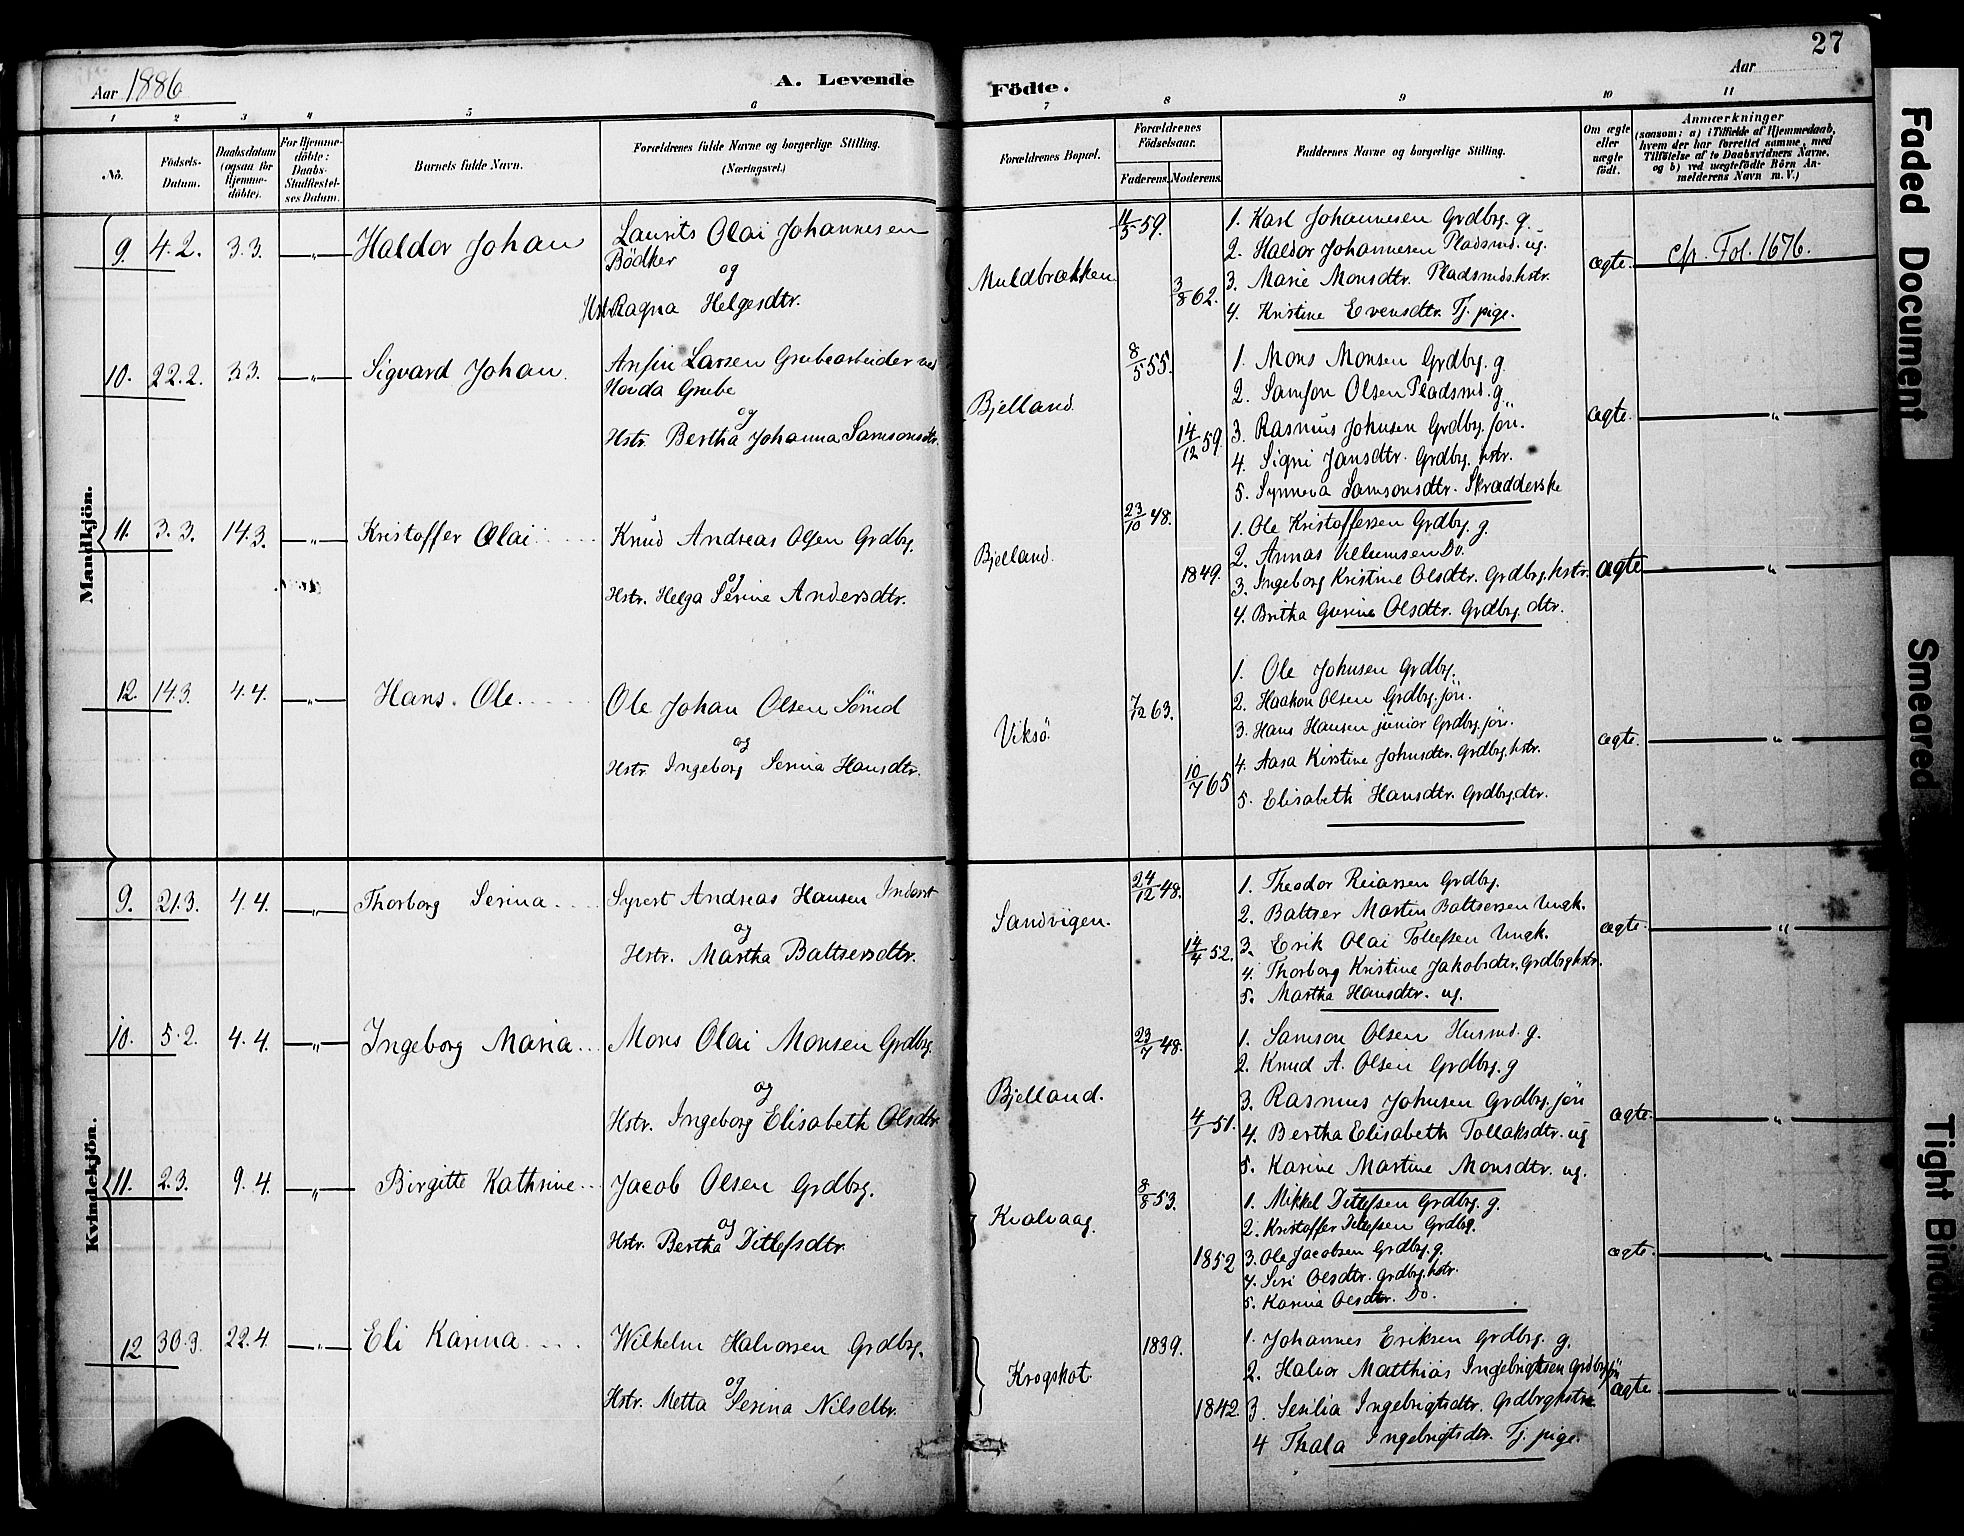 27
Aar 1886
A. Levende
Födte.
Aar
1 2 3 4 5 6 7 8 9 10 11
No.
Födsels-
Datum.
Daabsdatum
(ogsaa for
Hjemme-
döbte).
For Hjemme-
döbte:
Daabs-
Stadfæstel-
ses Datum.
Barnets fulde Navn.
Forældrenes fulde Navne og borgerlige Stilling.
(Næringsvei.)
Forældrenes Bopæl.
Forældrenes
Födselsaar.
Faderens.
Moderens.
Faddernes Navne og borgerlige Stilling.
Om ægte
eller
uægte
födt.
Anmærkninger
(saasom: a) i Tilfælde af Hjemmedaab,
hvem der har forrettet samme, med
Tilföielse af to Daabsvidners Navne,
og b) ved uægtefödte Börn An-
melderens Navn m. V.)
Mandkjön.
9. 4.2. 3.3. — „ — Haldor Johan
Laurits Olai Johannesen
Bödker
og
Hstr. Ragna Helgesdtr.
Muldbrækken
11/5 59.
3/8 62.
1. Karl Johannesen Grdbrg. g.
2. Haldor Johannesen Pladsmd. ug.
3. Marie Monsdtr. Pladsmds.hstr.
4. Kristine Evensdtr. Tj. pige.
ægte.
cfr. Fol. 1676.
10. 22.2. 3.3. — „ — Sigvard Johan
Anfin Larsen Grubearbeider ved
Hovda Grube
og
Hstr. Bertha Johanna Samsonsdtr.
Bjelland.
8/5 55.
14/12 59.
1. Mons Monsen Grdbrg. g.
2. Samson Olsen Pladsmd. g.
3. Rasmus Johnsen Grdbrg. sön.
4. Signi Jansdtr. Grdbrg. hstr.
5. Synneva Samsonsdtr. Skrædderske
ægte. — „ —
11. 3.3. 14.3. — „ — Kristoffer Olai
Knud Andreas Olsen Grdbrg.
og
Hstr. Helga Serine Andersdtr.
Bjelland.
23/10 48.
1849.
1. Ole Kristoffersen Grdbrg. g.
2. Annas Villumsen Do.
3. Ingeborg Kristine Olsdtr. Grdbrg. hstr.
4. Britha Gurine Olsdtr. Grdbrg. dtr.
ægte — „ —
12. 14.3. 4.4. — „ — Hans Ole
Ole Johan Olsen Sömd
og
Hstr. Ingeborg Serina Hansdtr.
Viksö.
7/12 63.
10/7 65
1. Ole Johnsen Grdbrg.
2. Haakon Olsen Grdbrg. sön.
3. Hans Hansen junior Grdbrg. sön.
4. Aasa Kirstine Johnsdtr. Grdbrg. hstr.
5. Elisabeth Hansdtr. Grdbrg. dtr.
ægte. — „ —
Kvindekjön.
9. 21.3. 4.4. — „ — Thorborg Serina
Syvert Andreas Hansen Inderst
og
Hstr. Martha Baltsersdtr.
Sandvigen.
24/12 48.
14/4 52.
1. Theodor Reiarsen Grdbrg.
2. Baltser Martin Baltsersen Ungk.
3. Erik Olai Tollefsen Ungk.
4. Thorborg Kristine Jakobsdtr. Grdbrg hstr.
5. Martha Hansdtr. ug.
ægte. — „ —
10. 5.2. 4.4. — „ — Ingeborg Maria
Mons Olai Monsen Grdbrg.
og
Hstr. Ingeborg Elisabeth Olsdtr.
Bjelland.
23/7 48.
4/1 51.
1. Samson Olsen Husmd. g.
2. Knud A. Olsen Grdbrg. g
3. Rasmus Johnsen Grdbrg. sön
4. Bertha Elisabeth Tollaksdtr. ug
5. Karine Martine Monsdtr. ug.
ægte. — „ —
11. 2.3. 9.4. — „ — Birgitte Kathrine
Jacob Olsen Grdbrg.
og
Hstr. Bertha Ditlefsdtr.
Kvalvaag.
8/8 53.
1852
1. Mikkel Ditlefsen Grdbrg. g.
2. Kristoffer Ditlefsen Grdbrg.
3. Ole Jacobsen Grdbrg. g.
4. Siri Olsdtr. Grdbrg. hstr.
5. Karina Olsdtr. Do.
ægte. — „ —
12 30.3. 22.4. — „ — Eli Karina
Wilhelm Halvorsen Grdbrg.
og
Hstr. Metta Serina Nilsdtr.
Krogshot.
1839.
1842.
1. Johannes Eriksen Grdbrg. g.
2. Halvor Matthias Ingebrigtsen Grdbrg sön
3. Sesilia Ingebrigtsdtr. Grdbrg hstr
4 Thala Ingebrigtsdtr. Tj. pige.
ægte — „ —
Faded Document
Smeared
Tight Binding